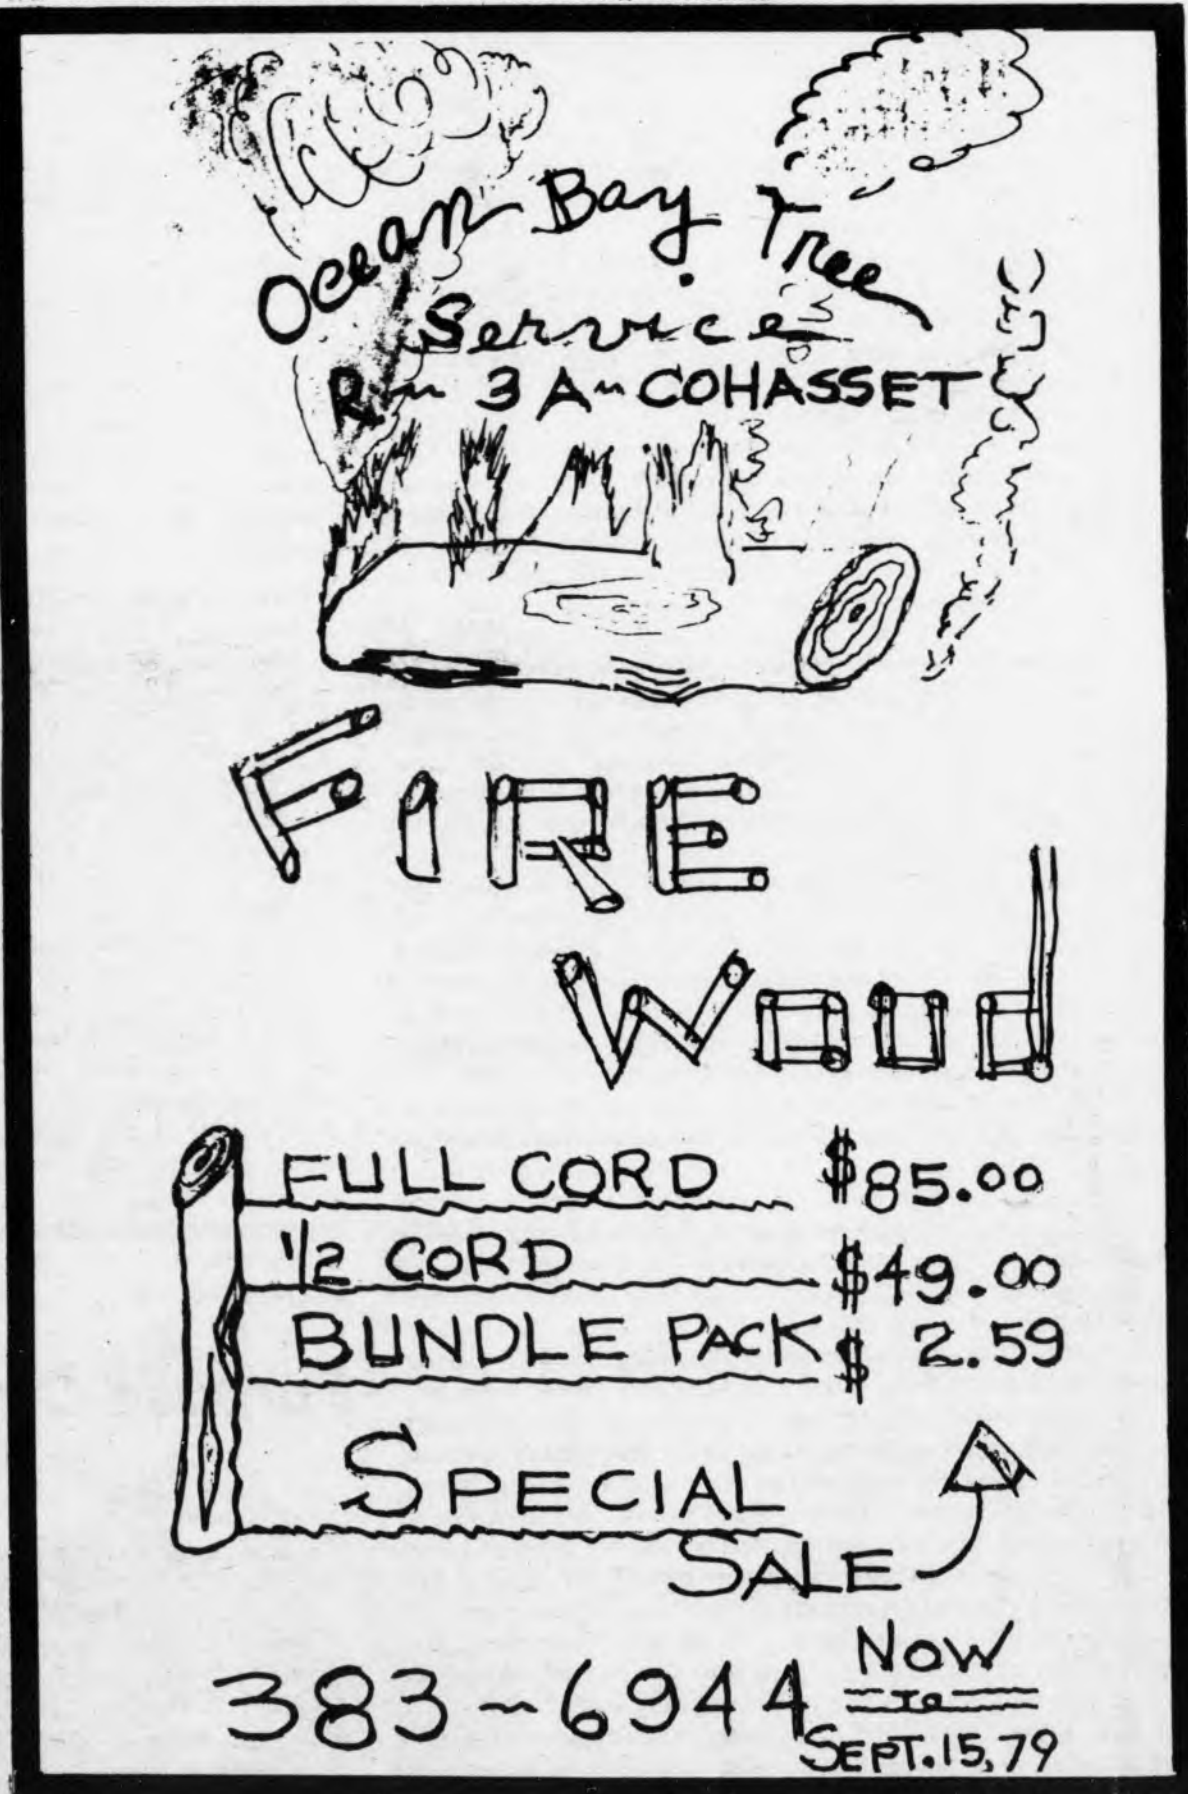 Ocean Bay Tree
Service
R ~ 3 A ~ COHASSET
FIRE
Wood
FULL CORD $85.00
1/2 CORD $49.00
BUNDLE PACK $ 2.59
SPECIAL
SALE
383-6944
NOW
TO
SEPT. 15, 79